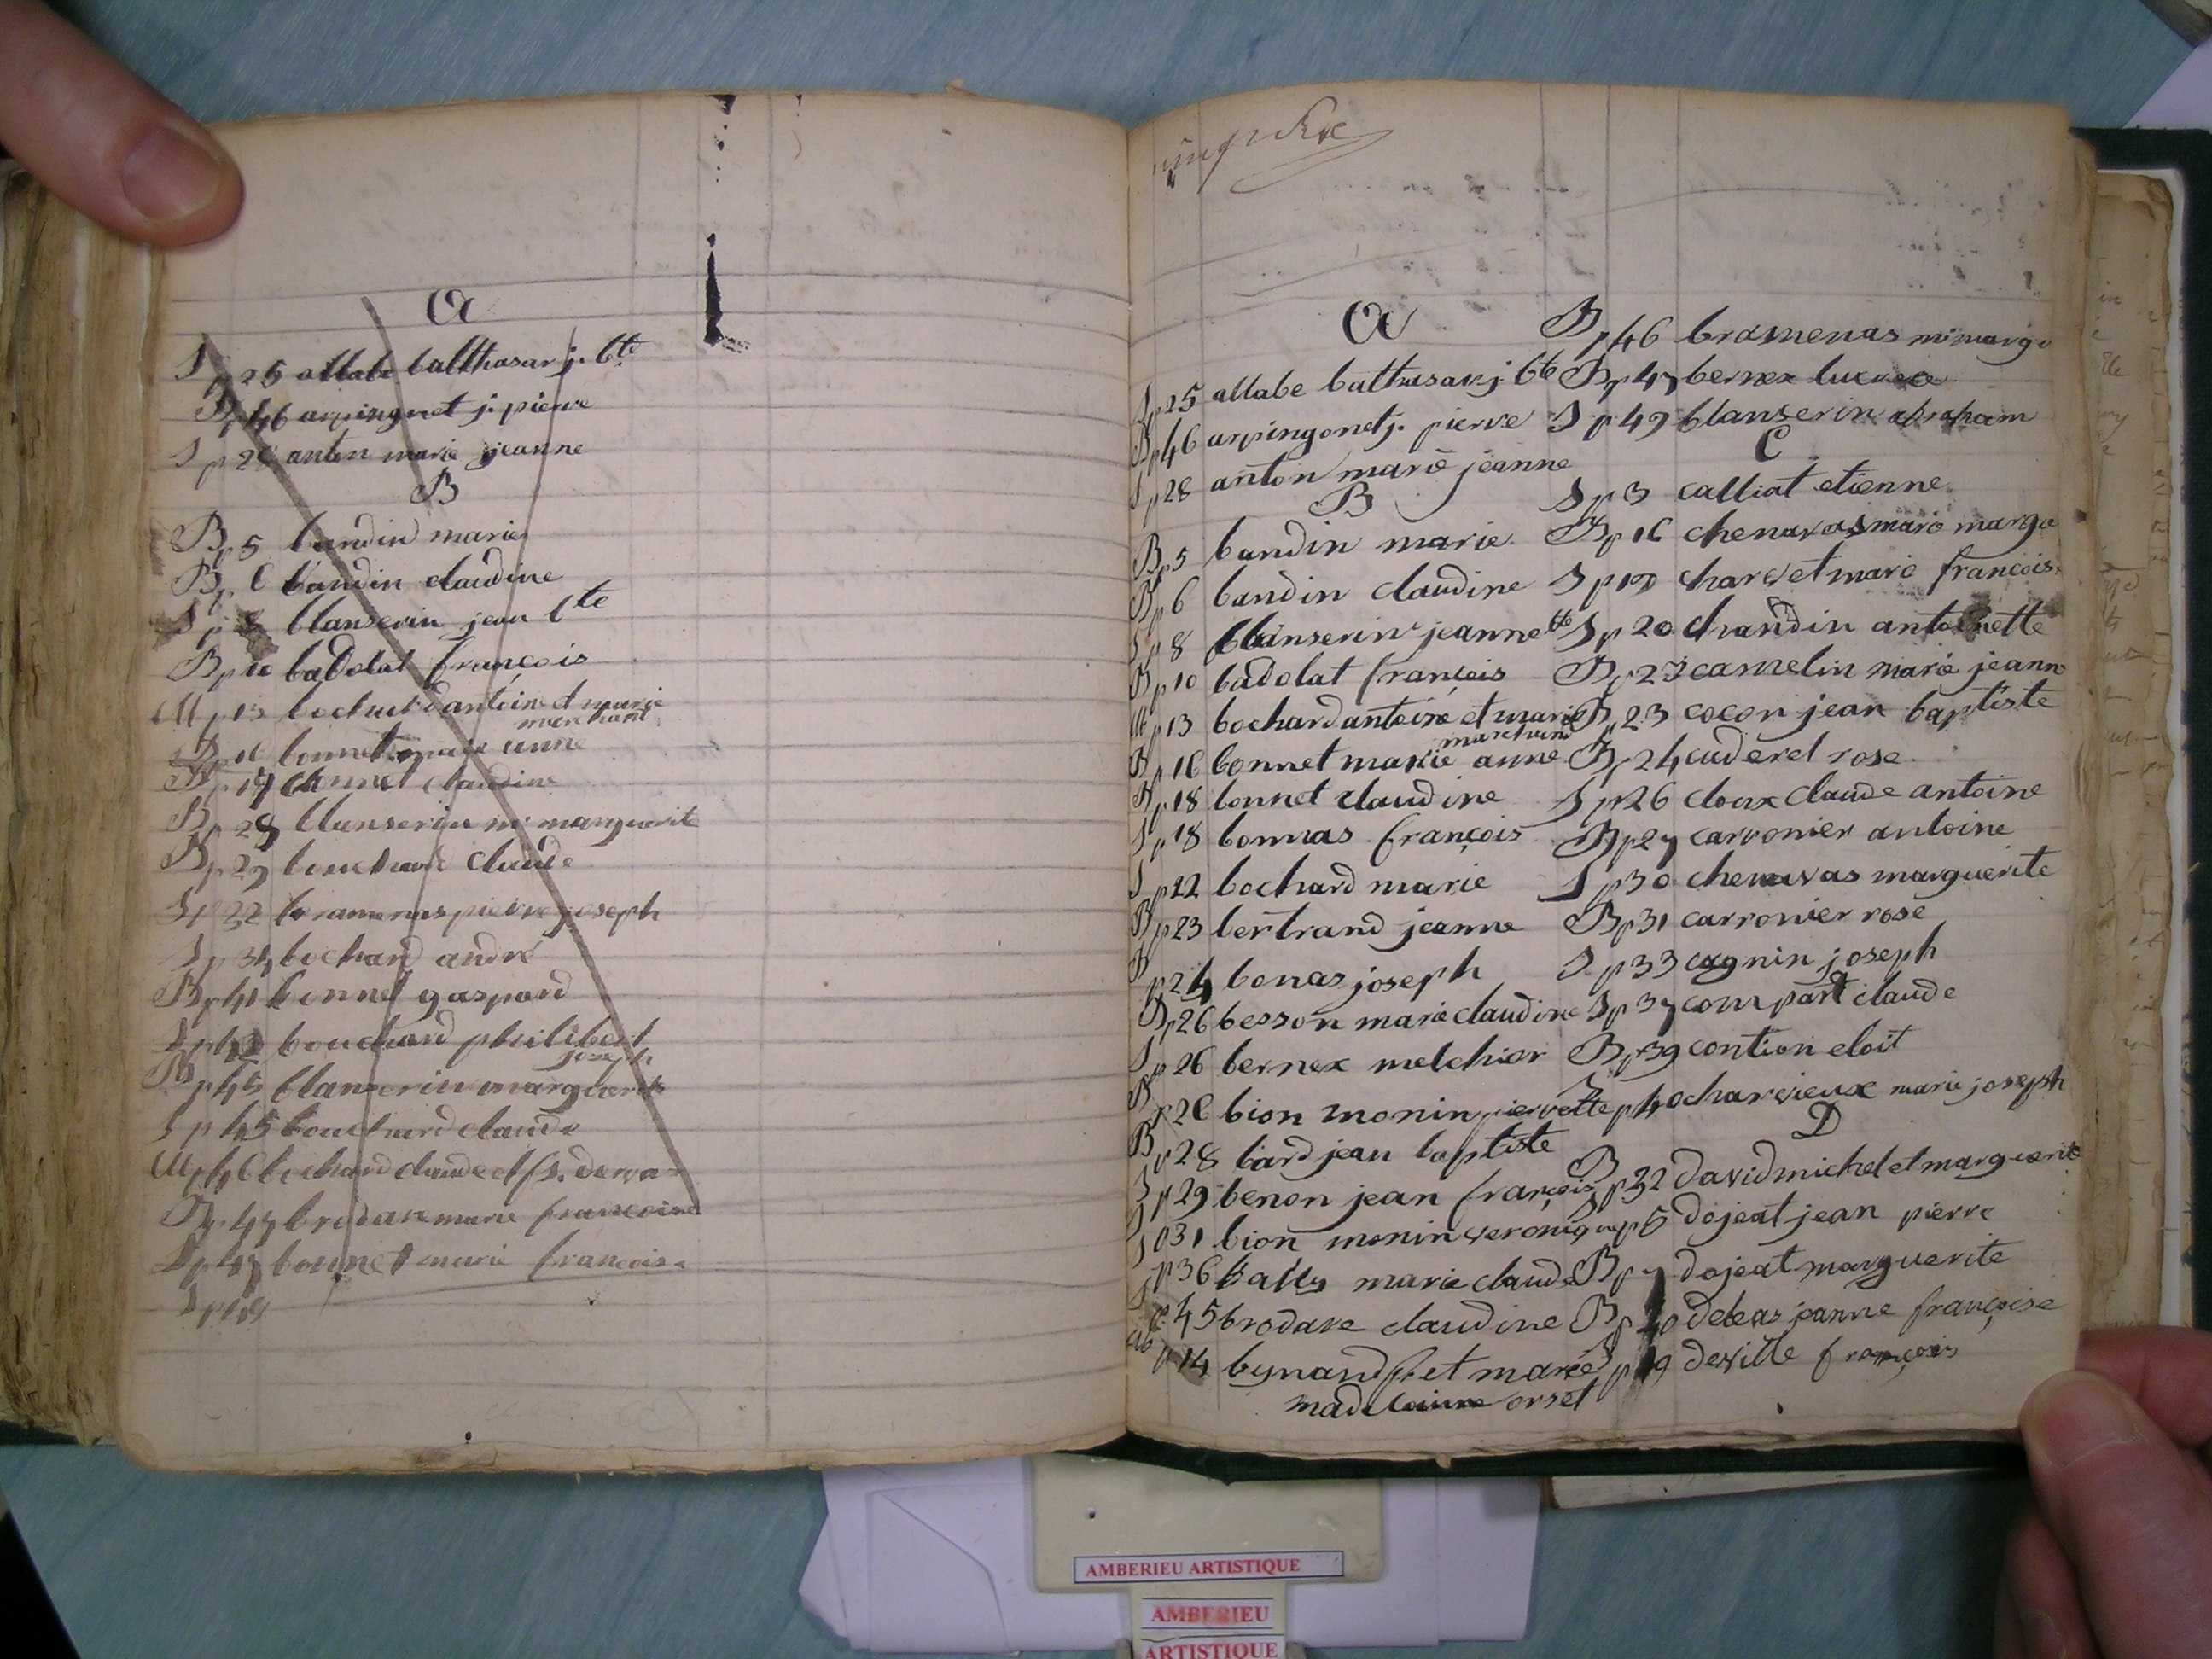 A
S p 25 allabe balthasar j. bte
B p 46 arpingnet j. pierre
S p 28 anton marie jeanne
B
B p 5 bandin marie
B p 6 bandin claudine
S p 8 blanserin jean bte
B p 10 badolat françois
M p 13 bochard antoine et marie
merchant
B p 16 bonnet marie anne
claudine
B p 28 blanserin me marguerite
B p 29 bouchard claude
S p 32 bramenas pierre joseph
S p 34 bochard andré
B p 41 bonnet gaspard
S p 42 bouchard philibert
joseph
B p 45 blanserin marguerite
S p 45 bouchard claude
M p 46 bochard claude et
B p 47 brodare marie françoise
S p 47 bonnet marie françoise
S p 49
A
S p 25 allabe balthasar j. bte
B p 46 arpingonet j. pierre
S p 28 anton marie jeanne
B
B p 5 bandin marie
B p 6 bandin claudine
S p 8 blanserin jeanne bte
B p 10 badolat françois
M p 13 bochard antoine et marie
marchand
B p 16 bonnet marie anne
B p 18 bonnet claudine
S p 18 bonnas françois
S p 22 bochard marie
B p 23 bertrand jeanne
B p 24 bonas joseph
B p 26 besson marie claudine
S p 26 bernex melchior
B p 26 bion monin pierrette
B p 28 bard jean baptiste
S p 29 benon jean françois
S p 31 bion monin veronique
S p 36 bally marie claude
p 45 brodare claudine
p 14 bynand fr. et marie
madelainne orset
B p 46 bramenas m marge
B p 47 bernex lucrece
S p 49 blanserin abraham
C
S p 3 calliat etienne
B p 16 chenavas marie margu
S p 19 charvet marie françois
S p 20 chandin antoinette
B p 23 camelin marie jeann
B p 23 cocon jean baptiste
B p 24 cuderel rose
S p 26 cloux claude antoine
B p 27 carronier antoine
S p 30 chenavas marguerite
B p 31 carronier rose
S p 33 cagnin joseph
S p 37 compart claude
B p 39 contion eloit
S p 40 charvieux marie joseph
D
B p 32 david michel et marguerite
S p 5 dojeat jean pierre
B p 7 dojeat marguerite
B p 10 debeas jeanne françoise
S p 19 deville françois
AMBERIEU ARTISTIQUE
AMBERIEU
ARTISTIQUE